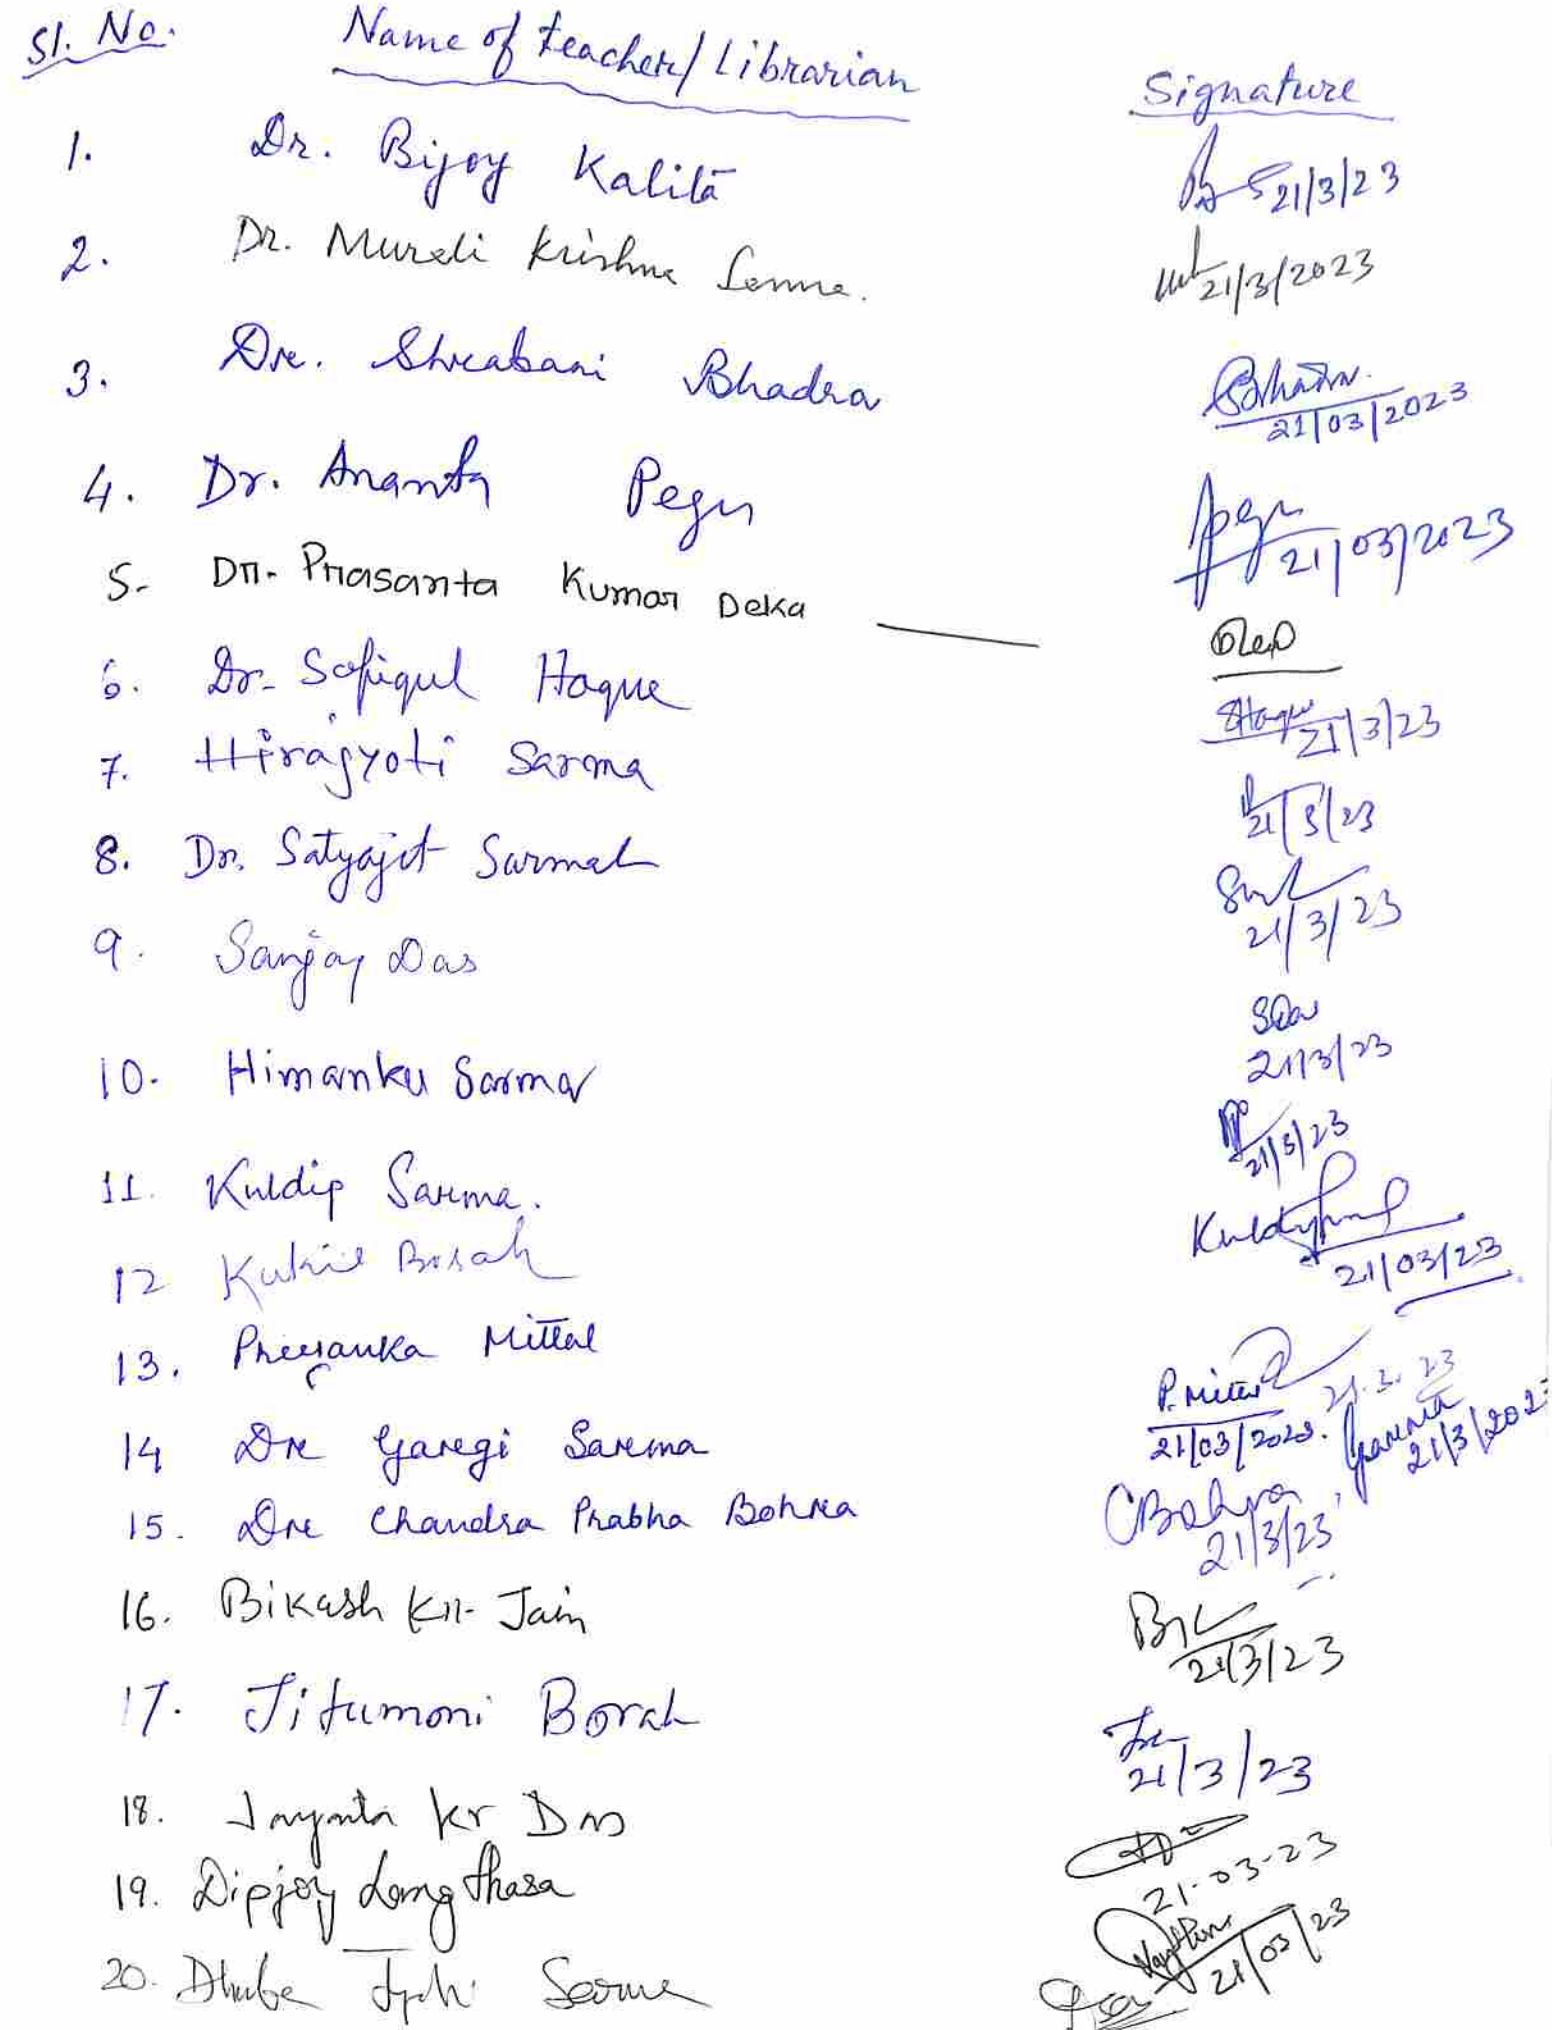 Sl. No. Name of teacher/Librarian Signature
1. Dr. Bijoy Kalita 21/3/23
2. Dr. Murali Krishna Sarma. 21/3/2023
3. Dr. Shrabani Bhadra 21/03/2023
4. Dr. Ananta Pegu 21/03/2023
5. Dr. Prasanta Kumar Deka
6. Dr. Sofiqul Haque SHaque 21/3/23
7. Hirajyoti Sarma 21/3/23
8. Dr. Satyajit Sarmah 21/3/23
9. Sanjay Das SDas 21/3/23
10. Himanku Sarma 21/3/23
11. Kuldip Sarma. 21/03/23
12 Borah 21.3.23
13. Priyanka Mittal P. Mittal 21/03/2023.
14 Dr Gargi Sarma GSarma 21/3/2023
15. Dr Chandra Prabha Bohra CBohra 21/3/23
16. Bikash Kr. Jain 21/3/23
17. Jitumoni Borah 21/3/23
18. Jayanta Kr Das 21-03-23
19. Dipjoy Langthasa 21/03/23
20. Sarma